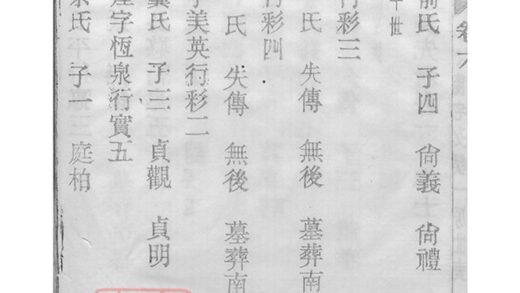 卷六
氏 子四 尙義 尙禮
世
行彩三
氏 失傳 無後 墓葬南
行彩四
氏 失傳 無後 墓葬南
字美英行彩二
龔氏 子三 貞觀 貞明
字恆泉行實五
氏 子一 庭柏